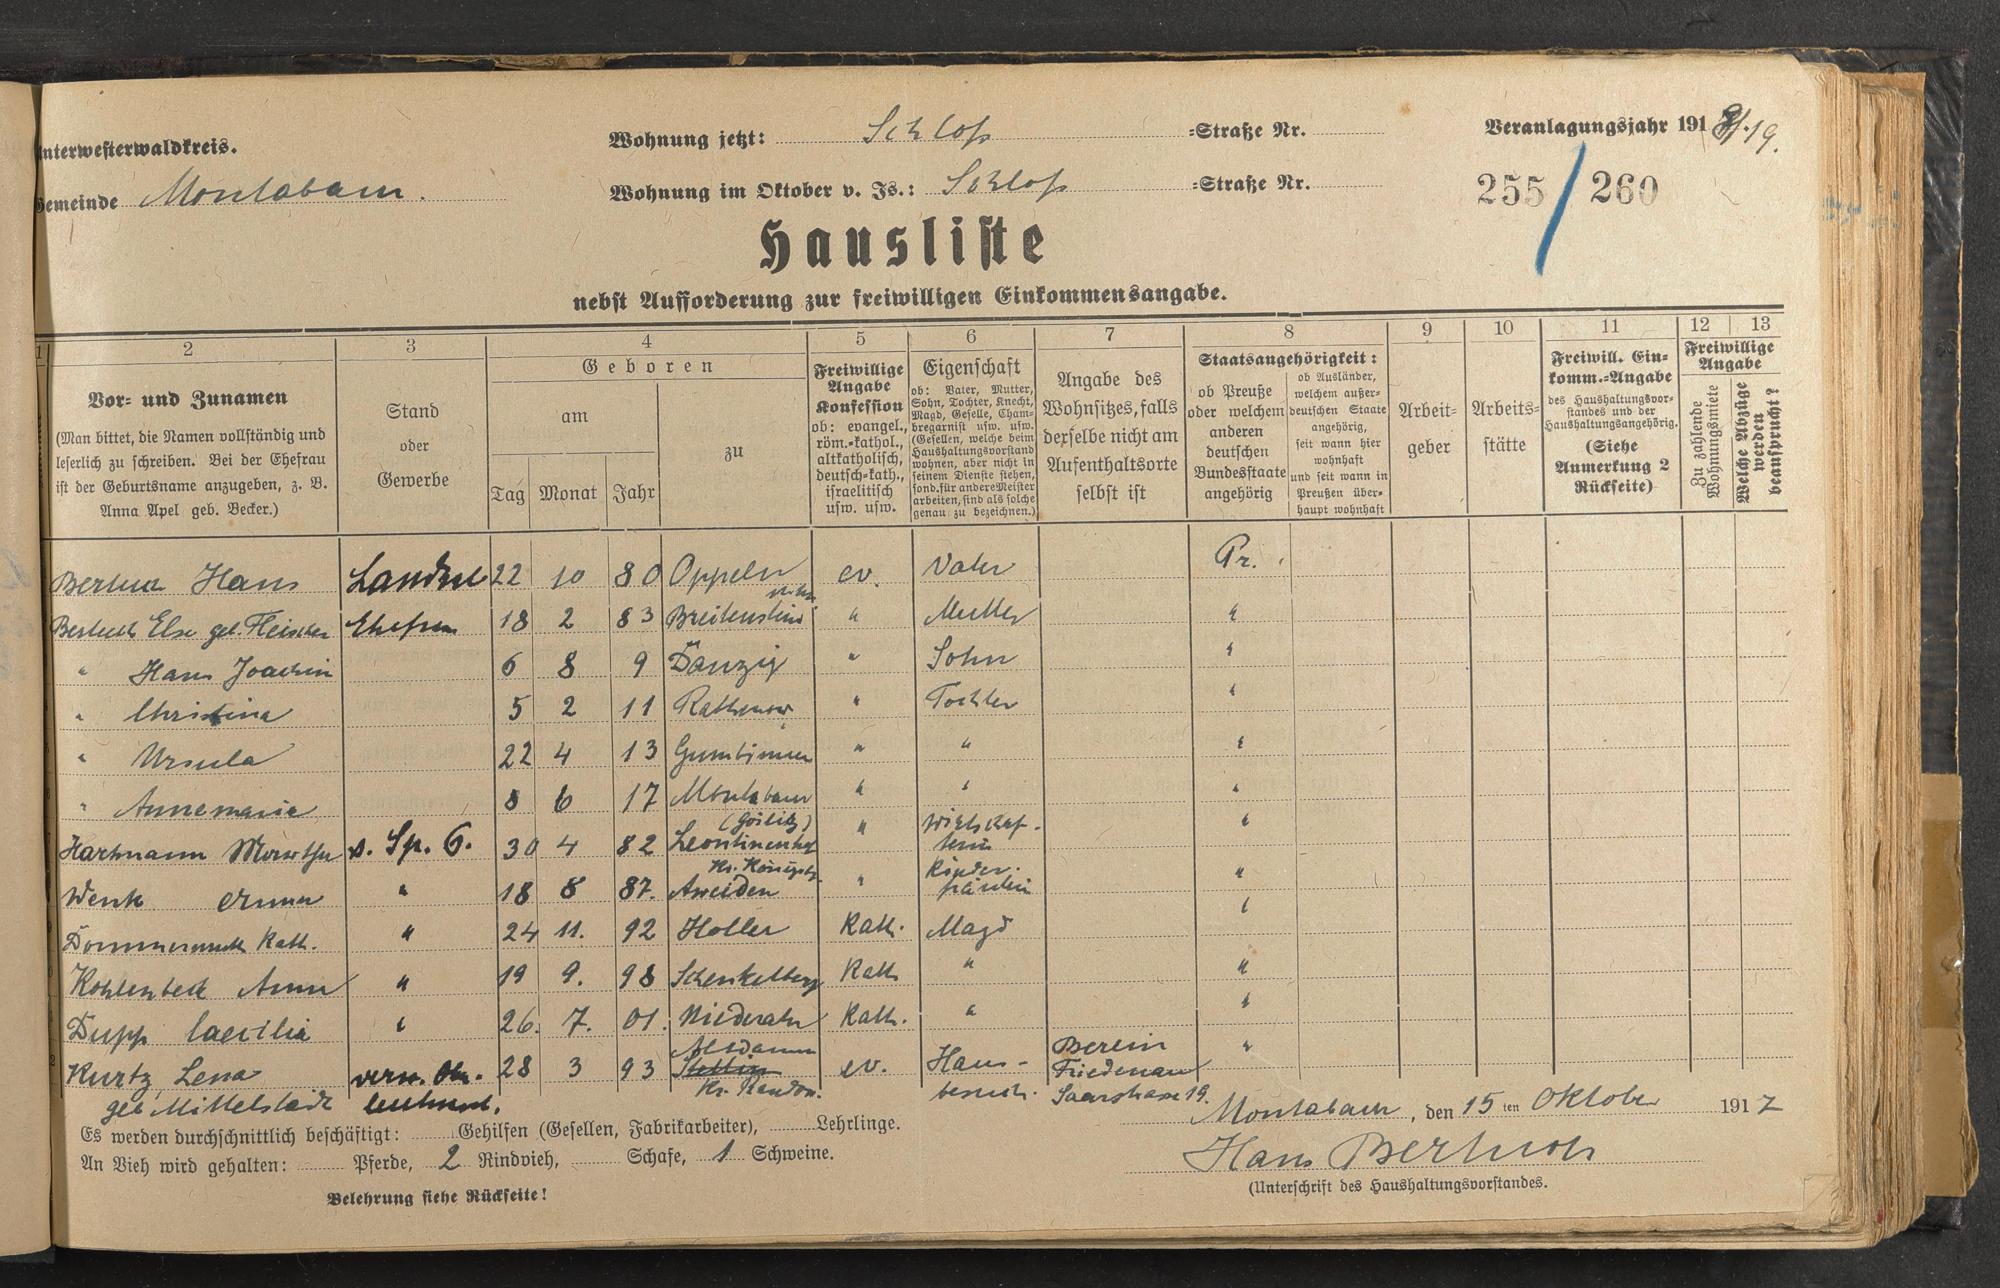 Unterwesterwaldkreis.
Gemeinde Montabaur.
Wohnung jetzt: Schloß =Straße Nr.
Wohnung im Oktober v. Js.: Schloß =Straße Nr.
Veranlagungsjahr 191 19.
255 / 260
Hausliste
nebst Aufforderung zur freiwilligen Einkommensangabe.
1 2 3 4 5 6 7 8 9 10 11 12 13
Vor- und Zunamen
(Man bittet, die Namen vollständig und
leserlich zu schreiben. Bei der Ehefrau
ist der Geburtsname anzugeben, z. B.
Anna Apel geb. Becker.)
Stand
oder
Gewerbe
Geboren
am
Tag Monat Jahr
zu
Freiwillige
Angabe
Konfession
ob: evangel.,
röm.-kathol.,
altkatholisch,
deutsch-kath.,
israelitisch
usw. usw.
Eigenschaft
ob: Vater, Mutter,
Sohn, Tochter, Knecht,
Magd, Geselle, Cham-
bregarnist usw. usw.
(Gesellen, welche beim
Haushaltungsvorstand
wohnen, aber nicht in
seinem Dienste stehen,
sond. für andere Meister
arbeiten, sind als solche
genau zu bezeichnen.)
Angabe des
Wohnsitzes, falls
derselbe nicht am
Aufenthaltsorte
selbst ist
Staatsangehörigkeit:
ob Preuße
oder welchem
anderen
deutschen
Bundesstaate
angehörig
ob Ausländer,
welchem außer-
deutschen Staate
angehörig,
seit wann hier
wohnhaft
und seit wann in
Preußen über-
haupt wohnhaft
Arbeit-
geber
Arbeits-
stätte
Freiwill. Ein-
komm.-Angabe
des Haushaltungsvor-
standes und der
Haushaltungsangehörig.
(Siehe
Anmerkung 2
Rückseite)
Freiwillige
Angabe
Zu zahlende
Wohnungsmiete
Welche Abzüge
werden
beansprucht?
Bertuch Hans Landrat 22 10 80 Oppeln ev. Vater Pr.
Bertuch Else geb. Fleischer Ehefrau 18 2 83 Breitenstein " Mutter "
" Hans Joachim 6 8 9 Danzig " Sohn "
" Christina 5 2 11 Rathenow " Tochter "
" Ursula 22 4 13 Gumbinnen " " "
" Annemarie 8 6 17 Montabaur " " "
(Görlitz)
Hartmann Martha s. Sp. 6. 30 4 82 Leontinenhof " Wirtschaf-
terin "
Kr. Königsb.
Wenk Anna " 18 8 87. Aweiden " Kinder-
fräulein "
Dommermuth Kath. " 24 11. 92 Holler Kath. Magd "
Kohlenbeck Anna " 19 9. 98 Schenkelberg Kath " "
Dupp Caecilia " 26. 7. 01. Niederahr Kath. " "
Altdamm
Kurtz Lena verw. Ob. 28 3 93 Stettin ev. Haus- Berlin "
Friedenau
geb Mittelstadt leutnant. Kr. Randow. besuch. Saarstrasse 19.
Es werden durchschnittlich beschäftigt: Gehilfen (Gesellen, Fabrikarbeiter), Lehrlinge.
An Vieh wird gehalten: Pferde, 2 Rindvieh, Schafe, 1 Schweine.
Belehrung siehe Rückseite!
Montabaur, den 15 ten Oktober 1917
Hans Bertuch
(Unterschrift des Haushaltungsvorstandes.